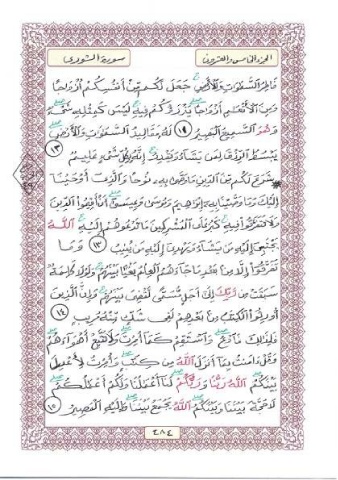 الجزء الخامس والعشرون
سورة الشورى
فاطر السموات والأرض جعل لكم من أنفسكم أزواجا
ومن الأنعم أزواجا يذرؤكم فيه ليس كمثله شىء
وهو السميع البصير ١١ له مقاليد السموات والأرض
يبسط الرزق لمن يشاء ويقدر إنه بكل شىء عليم ١٢
شرع لكم من الدين ما وصى به نوحا والذى أوحينا
إليك وما وصينا به إبرهيم وموسى وعيسى أن أقيموا الدين
ولا تتفرقوا فيه كبر على المشركين ما تدعوهم إليه الله
يجتبى إليه من يشاء ويهدى إليه من ينيب ١٣ وما
تفرقوا إلا من بعد ما جاءهم العلم بغيا بينهم ولولا كلمة
سبقت من ربك إلى أجل مسمى لقضى بينهم وإن الذين
أورثوا الكتب من بعدهم لفى شك منه مريب ١٤
فلذلك فادع واستقم كما أمرت ولا تتبع أهواءهم
وقل ءامنت بما أنزل الله من كتب وأمرت لأعدل
بينكم الله ربنا وربكم لنا أعملنا ولكم أعملكم
لا حجة بيننا وبينكم الله يجمع بيننا وإليه المصير ١٥
٤٨٤